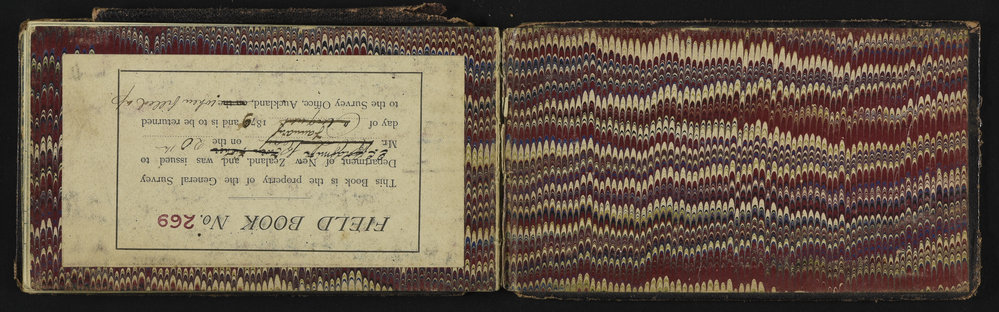 FIELD BOOK No. 269
This Book is the property of the General Survey
Department of New Zealand, and was issued to
Mr. on the 20th
day of 1879 and is to be returned
to the Survey Office, Auckland, when filled up